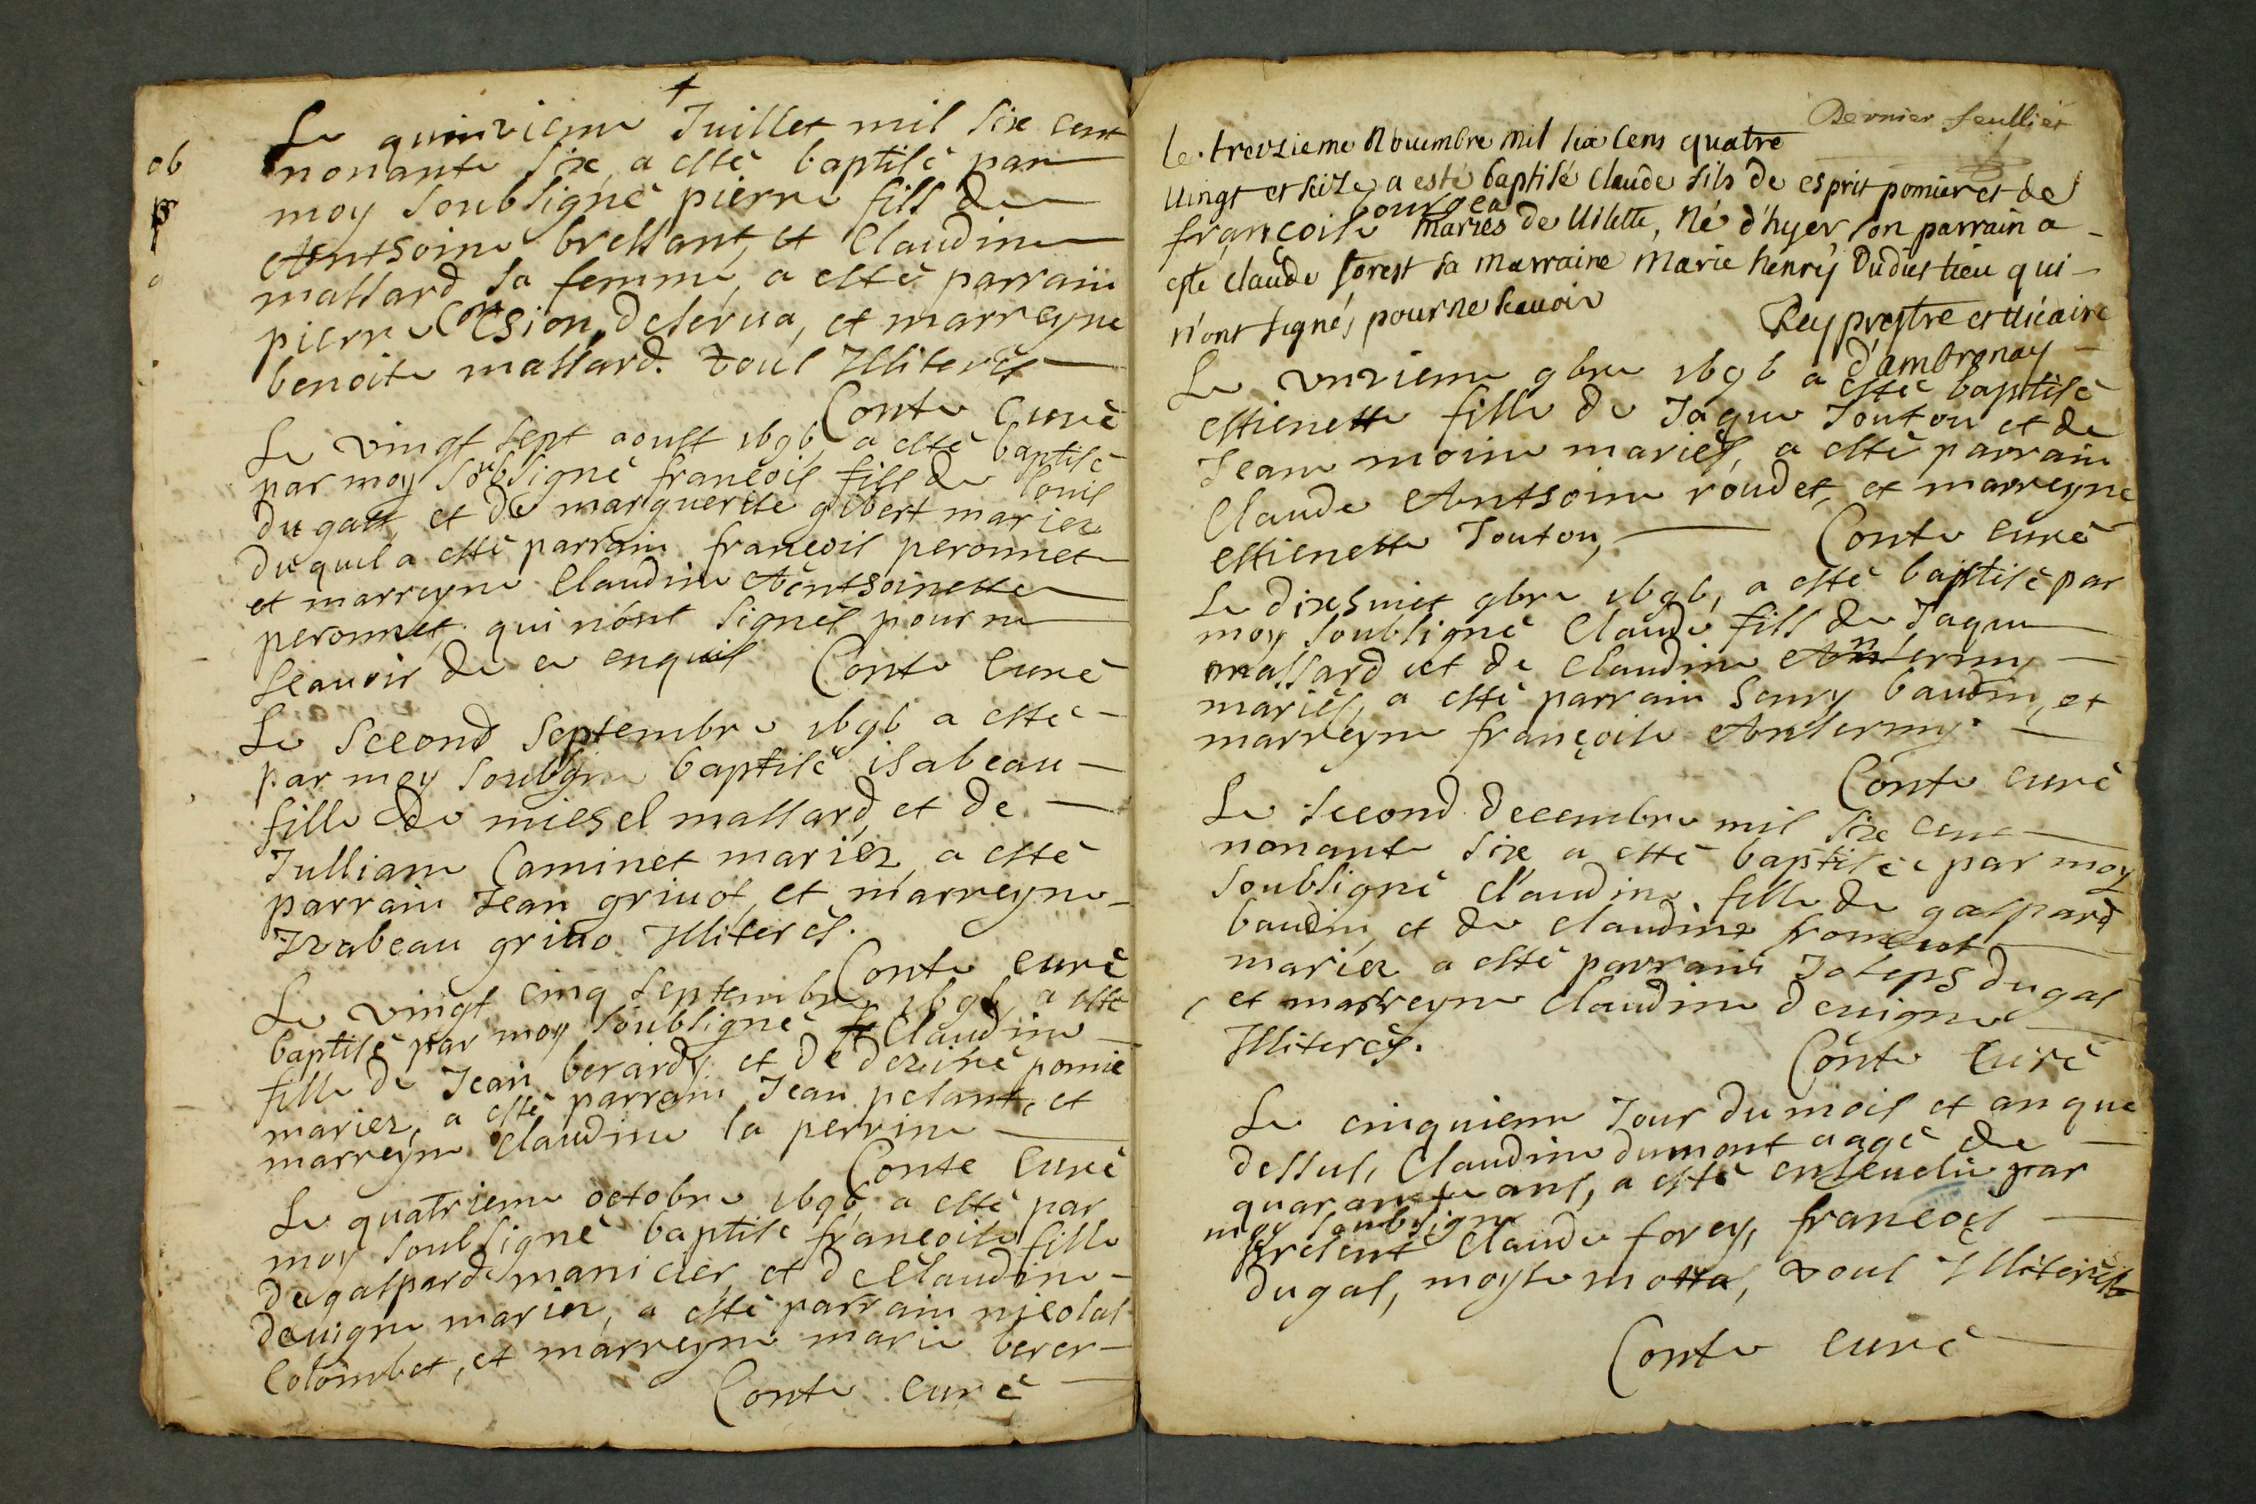 Le quinzieme Juillet mil six cent
nonante six, a esté baptisé par
moy soubsigné pierre fils de
Anthoine bressant, et Claudine
massard sa femme, a esté parrain
pierre delerua, et marreyne
benoite massard. tous Illiterés
Conte Curé
Le vingt sept aoust 1696, a esté baptisé
par moy soubsigné françois fils de louis
du gast, et de marguerite gibert mariez
duquel a esté parrain françois peronnet
et marreyne Claudine Anthoinette
peronnet, qui n'ont signés pour ne
scauoir de ce enquis Conte Curé
Le second septembre 1696 a esté
par moy soubsigné baptisé isabeau
fille de michel massard, et de
Julliane Caminet mariez, a esté
parrain Jean griuot, et marreyne
Izabeau griuo Illiterés.
Conte curé
Le vingt cinq septembre 1696, a esté
baptisé par moy soubsigné Claudine
fille de Jean berards, et de deziré pomié
mariez, a esté parrain Jean pelant, et
marreyne Claudine la perrine
Conte Curé
Le quatrieme octobre 1696, a esté par
moy soubsigné baptisé françoise fille
de gaspard manicier, et de Claudine
deuigne mariez, a esté parrain nicolas
Colombet, et marreyne marie berer
Conte Curé
Dernier feulliet
le treuzieme Nouembre mil six cens quatre
uingt et seize, a esté baptisé Claude fils de esprit pomier et de
françoise mariés de Uilette, Né d'hyer son parrain a
esté claude forest sa marraine Marie henry Dudist lieu qui
n'ont signés pour ne scauoir
Rey preshtre et uicaire
d'ambronay
Le vnzieme 9bre 1696 a esté baptisé
estienette fille de Jaque Jouton et de
Jeane moine mariés, a esté parrain
Claude Anthoine roudet, et marreyne
estienette Jouton, Conte curé
Le dixhuiet 9bre 1696, a esté baptisé par
moy soubsigné Claude fils de Jaque
massard et de Claudine Antermy
mariés, a esté parrain henry baudin, et
marreyne françoise Antermy.
Conte curé
Le second decembre mil six cent
nonante six a esté baptisée par moy
soubsigné claudine fille de gaspard
baudin, et de claudine froment
mariez a esté parrain Joseph dugas
et marreyne Claudine deuigne
Illiterés.
Conte Curé
Le cinquieme Jour du mois et an que
dessus, Claudine dumont aagé de
quarante ans, a esté enseuelie par
moy soubsigné
present Claude forey, françois
dugas, moyse motta, tous Illiterés
Conte curé